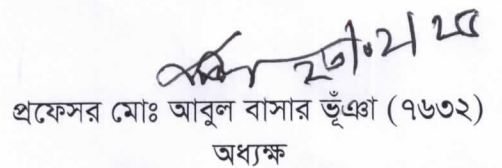 প্রফেসর মোঃ আবুল বাসার ভূঁঞা (৭৬৩২)
অধ্যক্ষ